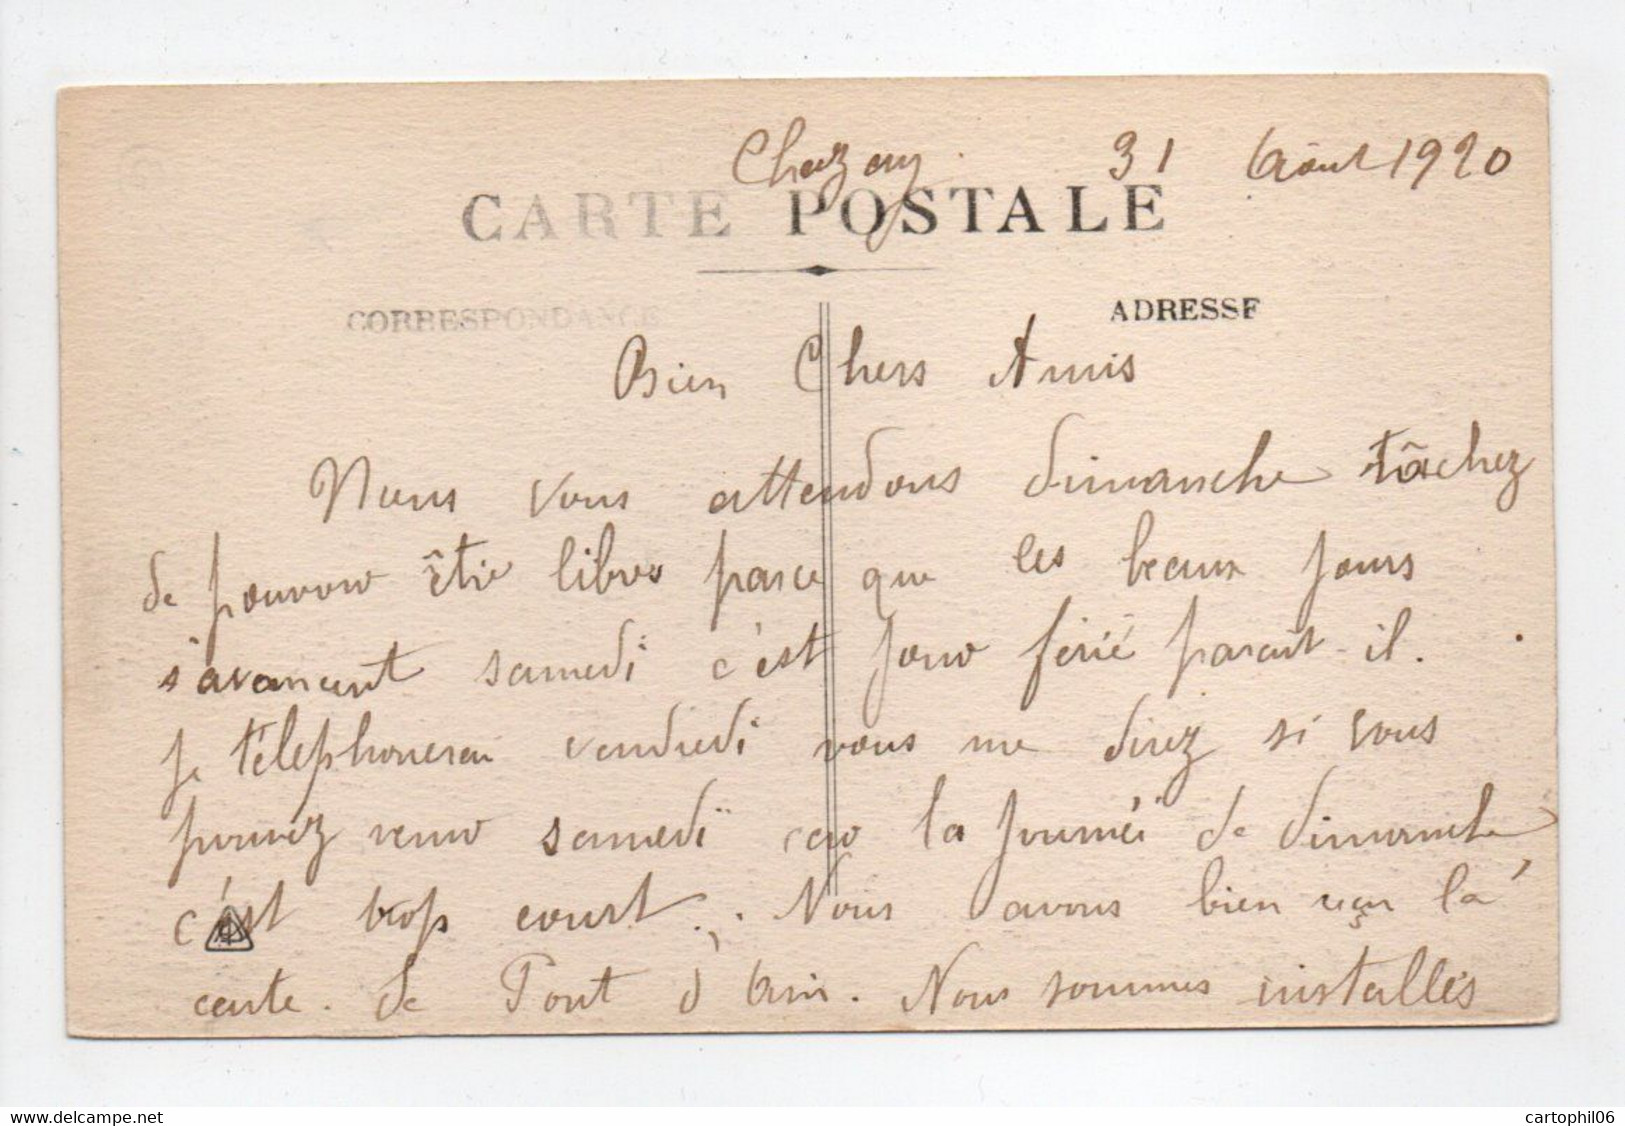 Chazay 31 Août 1920
CARTE POSTALE
CORRESPONDANCE
ADRESSE
Bien Chers Amis
Nous vous attendons dimanche tâchez
de pouvoir être libres parce que les beaux jours
s'avancent samedi c'est jour férié parait-il.
je télephonerai vendredi vous me direz si vous
pouvez venir samedi car la journée de dimanche
c'est trop court. Nous avons bien reçu la
carte. de Pont d'Ain. Nous sommes installés
www.delcampe.net
cartophil06